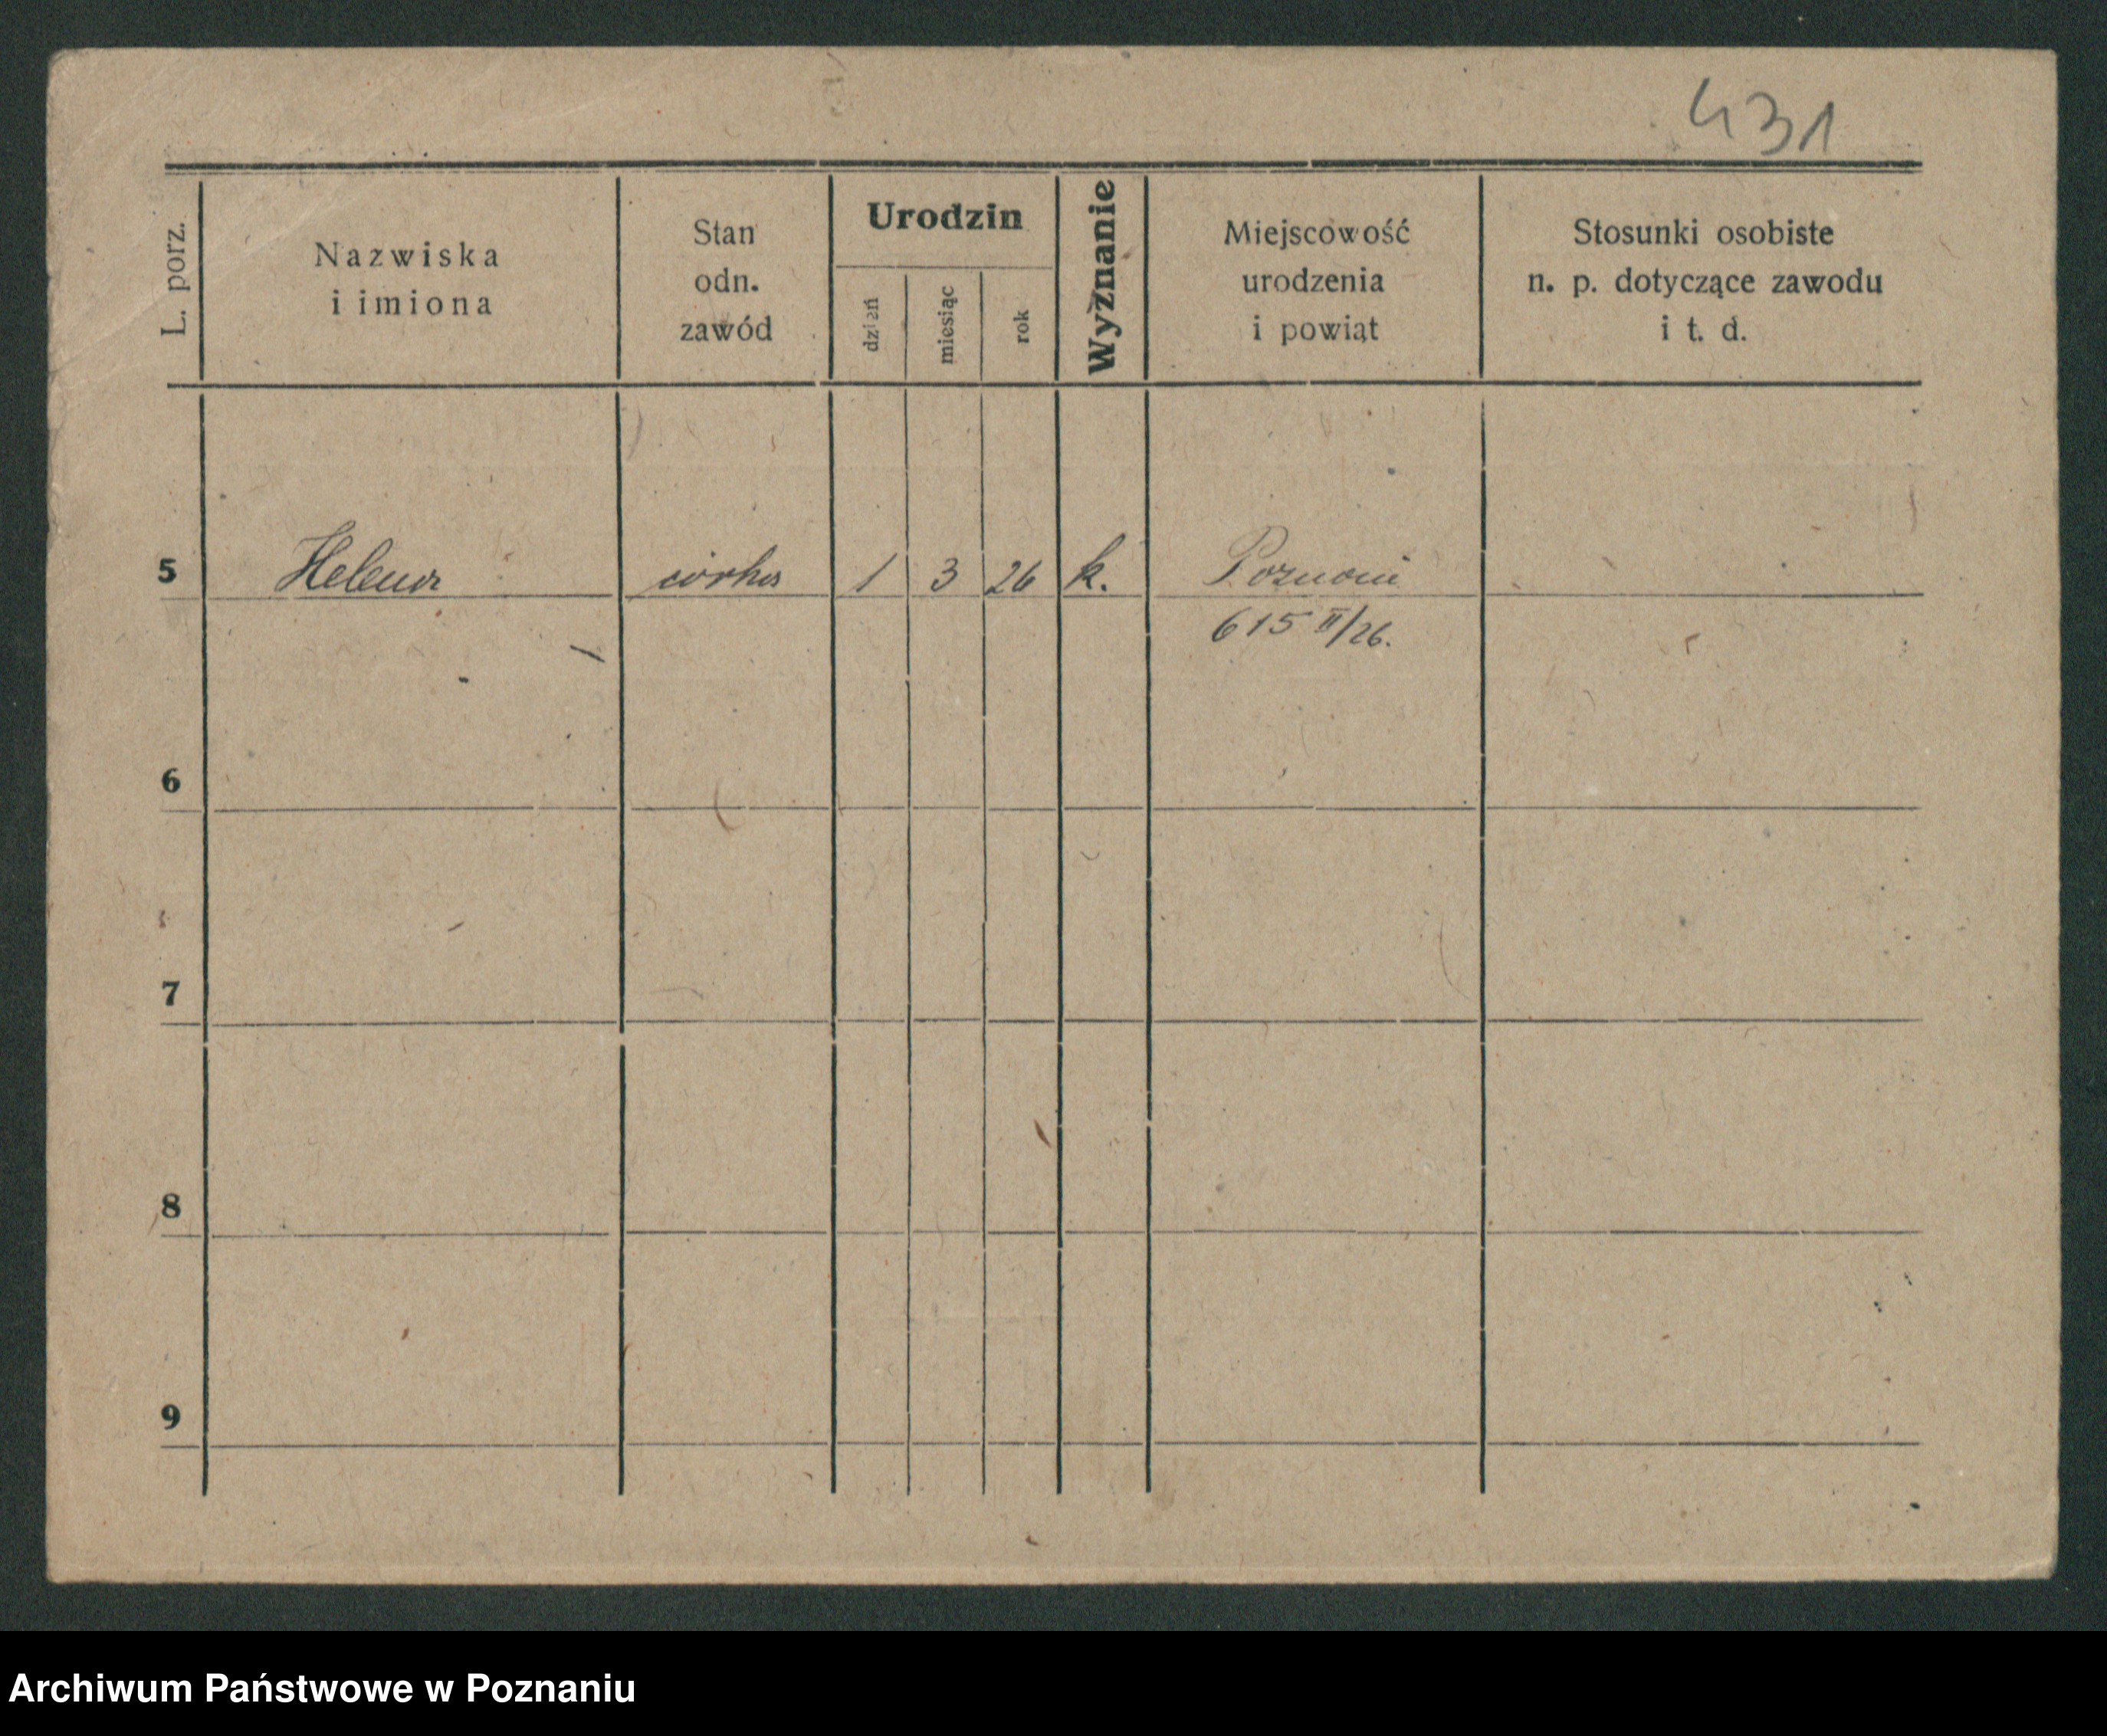 431
L. porz.
Nazwiska
i imiona
Stan
odn.
zawód
Urodzin
dzień
miesiąc
rok
Wyznanie
Miejscowość
urodzenia
i powiat
Stosunki osobiste
n. p. dotyczące zawodu
i t. d.
5 Helena córka 1 3 26 k. Poznań
615 II/26.
6
7
8
9
Archiwum Państwowe w Poznaniu